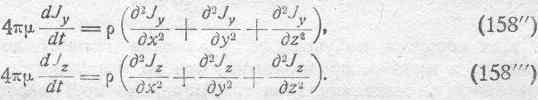 4πμ dJ_y/dt = ρ(∂²J_y/∂x² + ∂²J_y/∂y² + ∂²J_y/∂z²), (158″)
4πμ dJ_z/dt = ρ(∂²J_z/∂x² + ∂²J_z/∂y² + ∂²J_z/∂z²). (158‴)